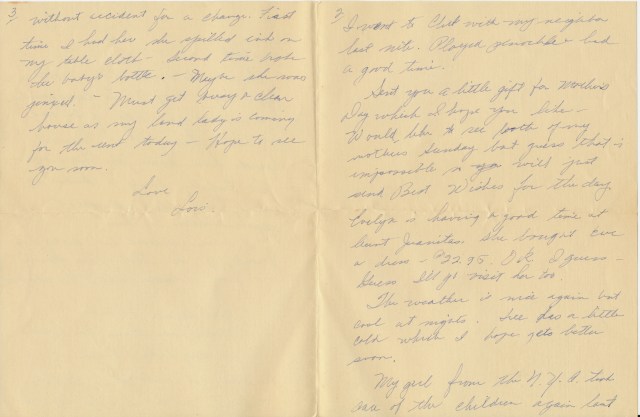 2
I went to Chet with my neighbor
last nite. Played pinochle & had
a good time.
Sent you a little gift for Mother's
Day which I hope you like -
Would like to see both of my
mothers Sunday but guess that is
impossible so you will just
send Best Wishes for the day.
Evelyn is having a good time at
Aunt Juanitas. She bought Eve
a dress - $22.95. O.K. I guess -
Guess I'll go visit her too.
The weather is nice again but
cool at nights. has a little
cold which I hope gets better
soon.
My girl from the N.Y.A. took
care of the children again last
3
without accident for a change. First
time I had her she spilled ink on
my table cloth - Second time broke
the baby's bottle. - Maybe she was
jinxed. - Must get busy & clean
house as my land lady is coming
for the rent today - Hope to see
you soon.
Love
Lois.